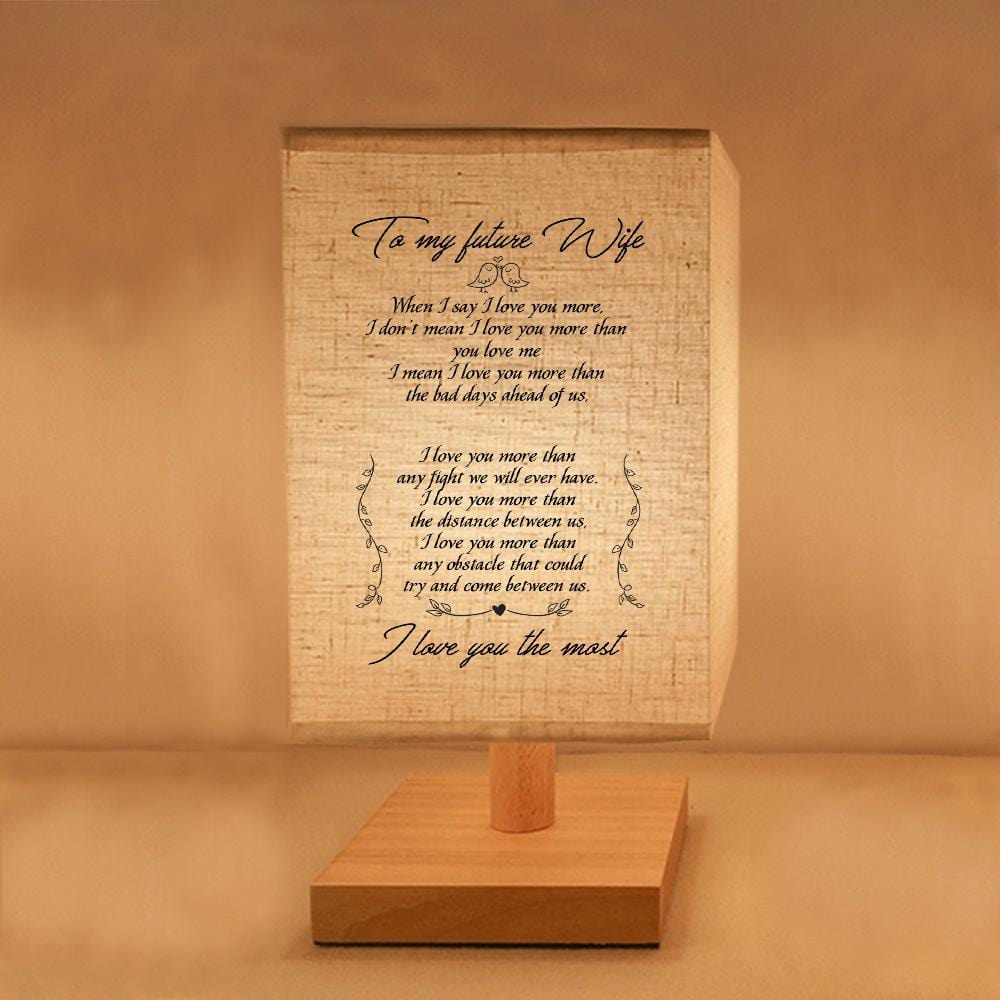 To my future Wife
When I say I love you more,
I don't mean I love you more than
you love me
I mean I love you more than
the bad days ahead of us,
I love you more than
any fight we will ever have.
I love you more than
the distance between us,
I love you more than
any obstacle that could
try and come between us.
I love you the most